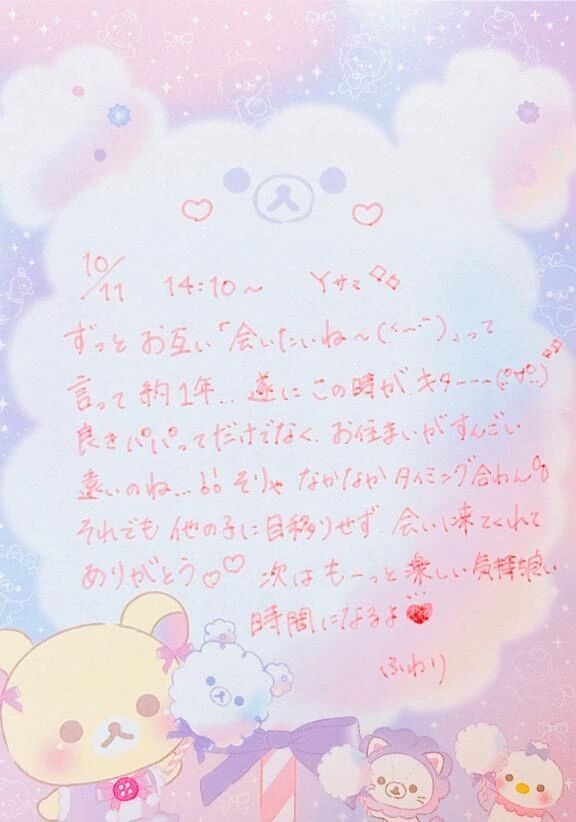 10/11 14:10〜 Yサマ
ずっとお互い「会いたいね〜(˘⌣˘)」って
言って約1年… 遂にこの時が、キター---(°∀°)
良きパパってだけでなく、お住まいがすんごい
遠いのね…!! そりゃなかなかタイミング合わん
それでも他の子に目移りせず、会いに来てくれて
ありがとう♡♡ 次はもーっと楽しい気持良い
時間になるよ♥
ふわり